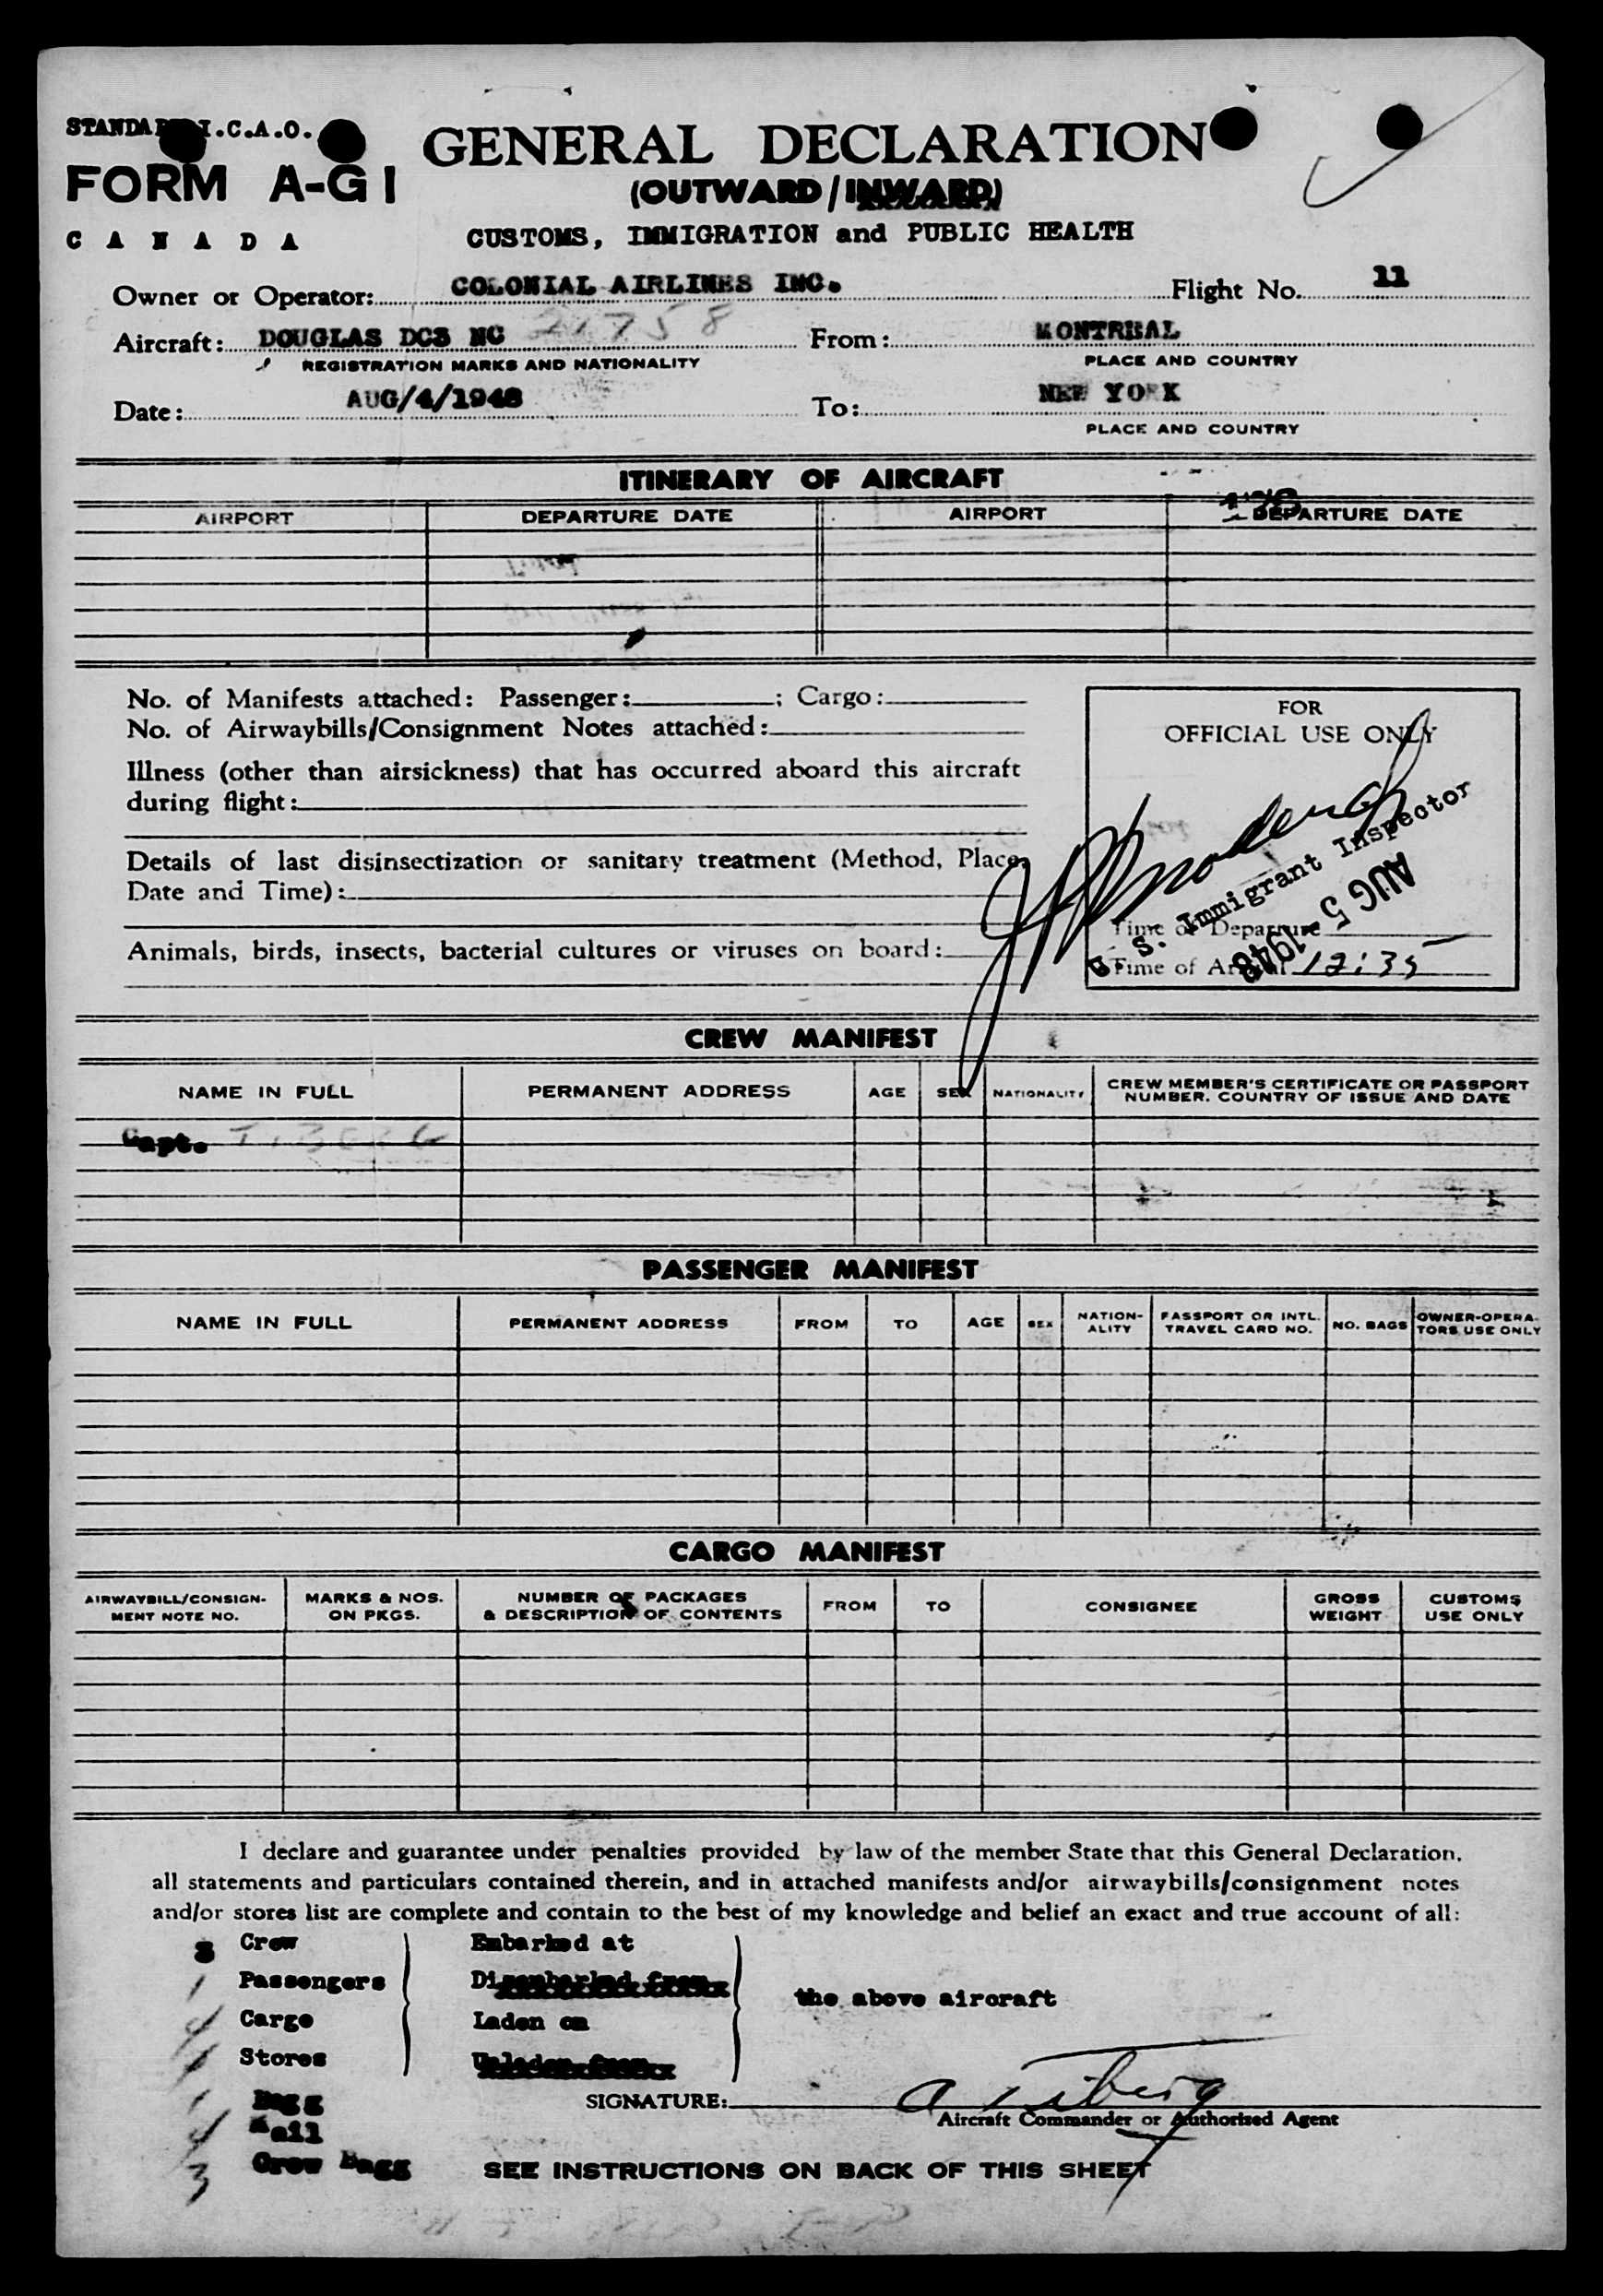 STANDARD I.C.A.O.
FORM A-G1
CANADA
GENERAL DECLARATION
(OUTWARD/INWARD)
CUSTOMS, IMMIGRATION and PUBLIC HEALTH
Owner or Operator: COLONIAL AIRLINES INC. Flight No. 11
Aircraft: DOUGLAS DC3 NC 21758 From: MONTREAL
REGISTRATION MARKS AND NATIONALITY PLACE AND COUNTRY
Date: AUG/4/1948 To: NEW YORK
PLACE AND COUNTRY
ITINERARY OF AIRCRAFT
AIRPORT DEPARTURE DATE AIRPORT DEPARTURE DATE
No. of Manifests attached: Passenger: ; Cargo:
No. of Airwaybills/Consignment Notes attached:
Illness (other than airsickness) that has occurred aboard this aircraft
during flight:
Details of last disinsectization or sanitary treatment (Method, Place,
Date and Time):
Animals, birds, insects, bacterial cultures or viruses on board:
FOR
OFFICIAL USE ONLY
U. S. Immigrant Inspector
AUG 5 - 1948
Time of Departure
Time of Arrival 12:35
CREW MANIFEST
NAME IN FULL PERMANENT ADDRESS AGE SEX NATIONALITY CREW MEMBER'S CERTIFICATE OR PASSPORT
NUMBER. COUNTRY OF ISSUE AND DATE
Capt. TIBERG
PASSENGER MANIFEST
NAME IN FULL PERMANENT ADDRESS FROM TO AGE SEX NATION-
ALITY PASSPORT OR INTL.
TRAVEL CARD NO. NO. BAGS OWNER-OPERA-
TORS USE ONLY
CARGO MANIFEST
AIRWAYBILL/CONSIGN-
MENT NOTE NO. MARKS & NOS.
ON PKGS. NUMBER OF PACKAGES
& DESCRIPTION OF CONTENTS FROM TO CONSIGNEE GROSS
WEIGHT CUSTOMS
USE ONLY
I declare and guarantee under penalties provided by law of the member State that this General Declaration,
all statements and particulars contained therein, and in attached manifests and/or airwaybills/consignment notes
and/or stores list are complete and contain to the best of my knowledge and belief an exact and true account of all:
3 Crew Embarked at
Passengers Disembarked from
the above aircraft
Cargo Laden on
Stores Unladen from
Bagg
SIGNATURE: A Tiberg
Mail
Aircraft Commander or Authorized Agent
3 Crew Bagg
SEE INSTRUCTIONS ON BACK OF THIS SHEET